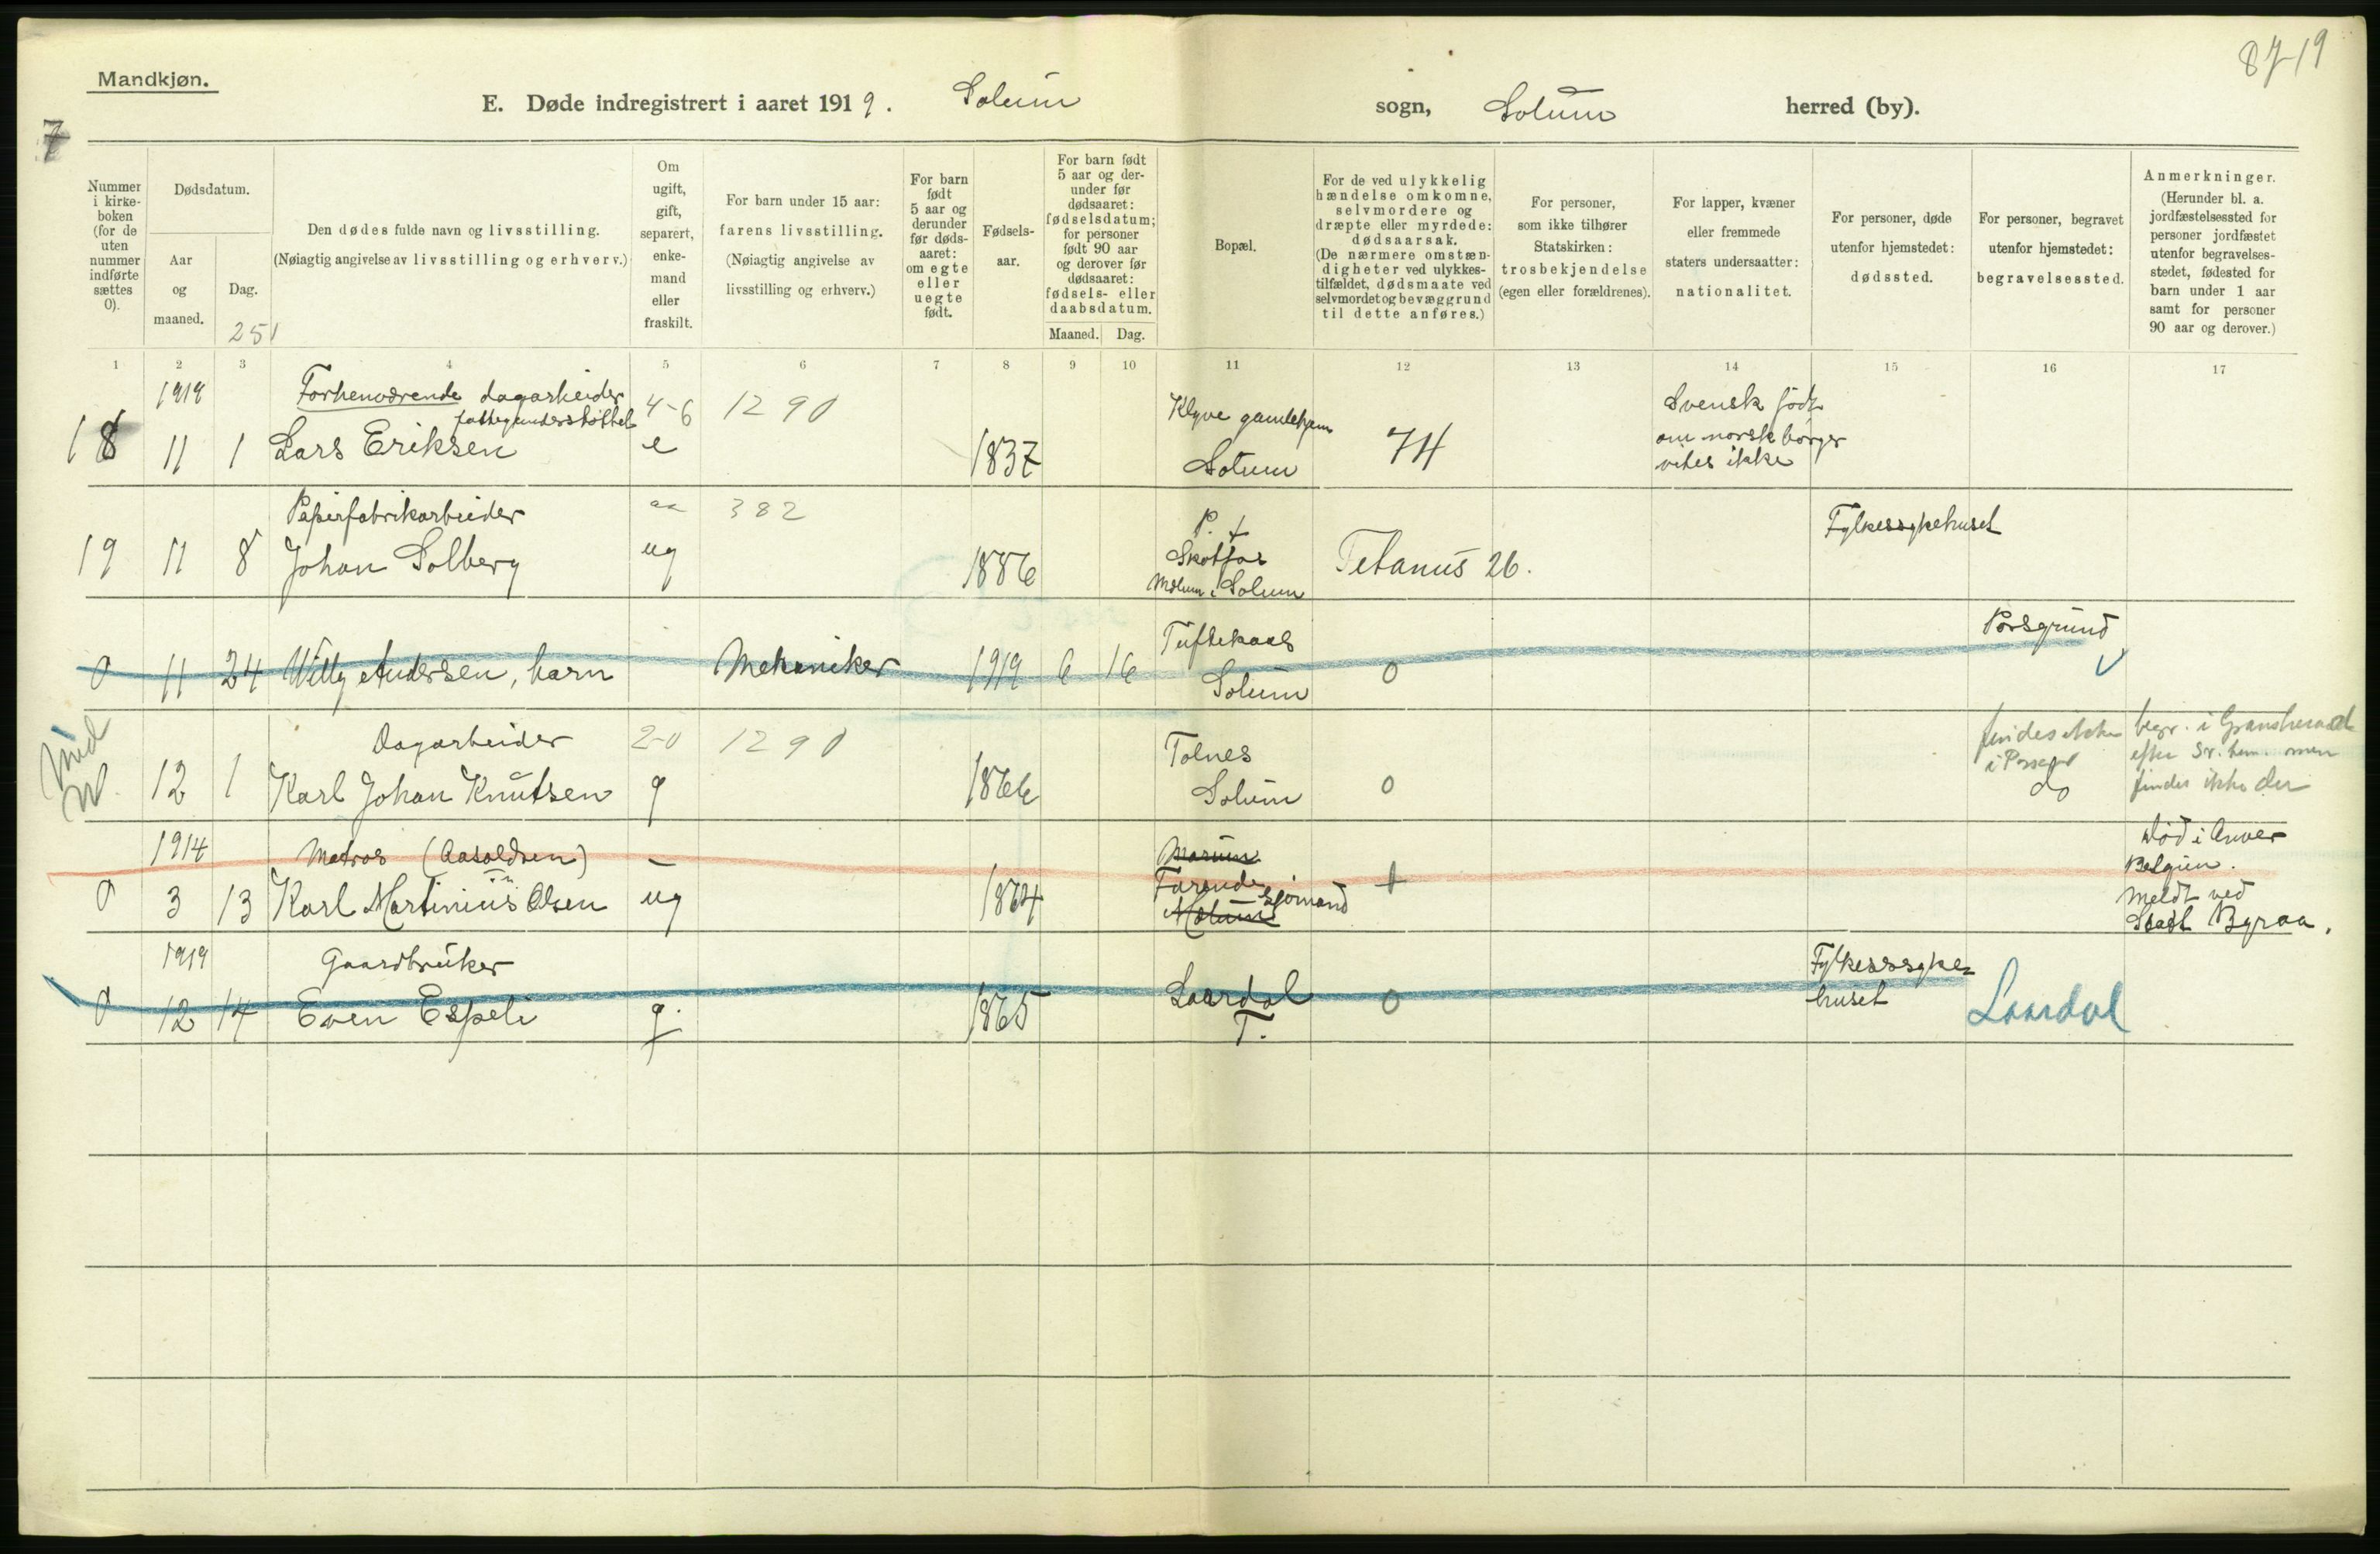 8719
Mandkjøn.
E. Døde indregistrert i aaret 1919. Solum sogn, Solum herred (by).
7
Nummer i kirkeboken (for de uten nummer indførte sættes 0).
Dødsdatum.
Aar og maaned.
Dag.
251
Den dødes fulde navn og livsstilling.
(Nøiagtig angivelse av livsstilling og erhverv.)
Om ugift, gift, separert, enkemand eller fraskilt.
For barn under 15 aar: farens livsstilling.
(Nøiagtig angivelse av livsstilling og erhverv.)
For barn født 5 aar og derunder før dødsaaret: om egte eller uegte født.
Fødselsaar.
For barn født 5 aar og derunder før dødsaaret: fødselsdatum; for personer født 90 aar og derover før dødsaaret: fødsels- eller daabsdatum.
Maaned. Dag.
Bopæl.
For de ved ulykkelig hændelse omkomne, selvmordere og dræpte eller myrdede: dødsaarsak.
(De nærmere omstændigheter ved ulykkestilfældet, dødsmaate ved selvmordet og bevæggrund til dette anføres.)
For personer, som ikke tilhører Statskirken: trosbekjendelse (egen eller forældrenes).
For lapper, kvæner eller fremmede staters undersaatter: nationalitet.
For personer, døde utenfor hjemstedet: dødssted.
For personer, begravet utenfor hjemstedet: begravelsessted.
Anmerkninger.
(Herunder bl. a. jordfæstelsessted for personer jordfæstet utenfor begravelsesstedet, fødested for barn under 1 aar samt for personer 90 aar og derover.)
1 2 3 4 5 6 7 8 9 10 11 12 13 14 15 16 17
1919 Forhenværende dagarbeider 4-6 1290 Klyve gamlehjem Svensk født
fattigunderstøttet om norsk borger
18 11 1 Lars Eriksen e 1837 Solum 74 vites ikke
Papirfabrikarbeider 382 P. + Fylkessykehuset
19 11 8 Johan Solberg ug 1886 Skotfos Tetanus 26.
Melum i Solum
Tuftekaas Porsgrund
0 11 24 Willy Andersen, barn Mekaniker 1919 6 16 Solum 0
Dagarbeider 2-0 1290 Tolnes findes ikke begr. i Gransherad
i Porsgr efter men
12 1 Karl Johan Knutsen g 1866 Solum 0 do findes ikke der
1914 Matros (Aasoldsen) - død i Anver
Farende sjømand + Belgien.
0 3 13 Karl Martinius Olsen ug 1864 Melum Meldt ved
Statt Byraa.
1919 Gaardbruker Fylkessyke-
0 12 14 Even Espeli g. 1865 Laardal 0 huset Laardal
T.